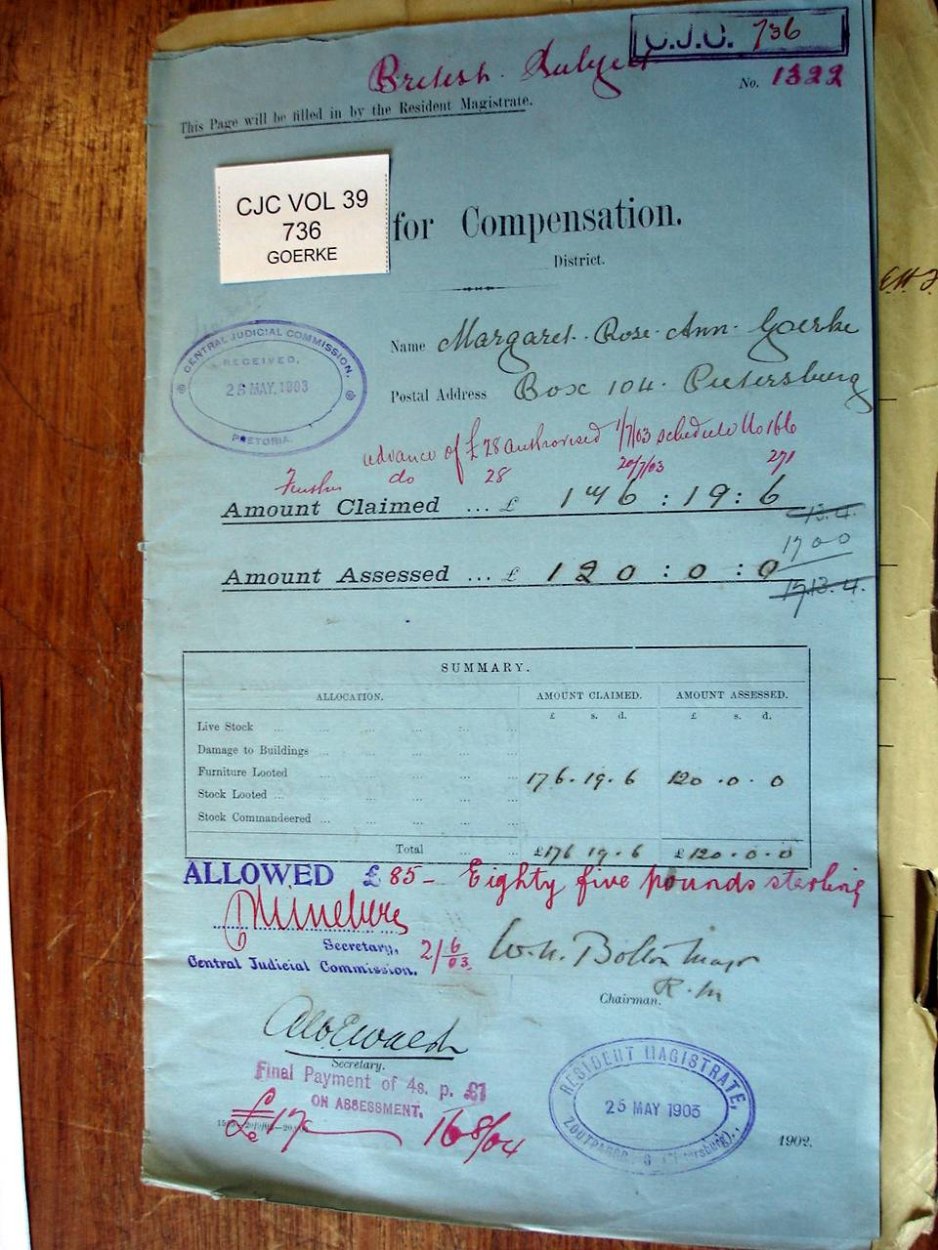 C.J.C. 736
British Subject
No. 1322
This Page will be filled in by the Resident Magistrate.
CJC VOL 39
736
GOERKE
for Compensation.
District.
CENTRAL JUDICIAL COMMISSION.
RECEIVED,
MAY. 1903
PRETORIA.
Name Margaret Rose Ann Goerke
Postal Address Box 104 Pietersburg
advance of £28 authorised 1/7/03 schedule No 166
Further do 28 20/7/03 271
Amount Claimed ... £ 176 : 19 : 6
13.4.
17 0 0
Amount Assessed ... £ 120 : 0 : 0
17.13.4.
SUMMARY.
ALLOCATION. AMOUNT CLAIMED. AMOUNT ASSESSED.
£ s. d. £ s. d.
Live Stock
Damage to Buildings
Furniture Looted 176 . 19 . 6 120 . 0 . 0
Stock Looted
Stock Commandeered
Total £176 19 . 6 £120 . 0 . 0
ALLOWED £85 – Eighty five pounds sterling
Secretary,
Central Judicial Commission.
2/6/03
W. H. Bolton Major
R. M
Chairman.
Secretary.
Final Payment of 4s. p. £1
ON ASSESSMENT.
£17
16/8/04
RESIDENT MAGISTRATE,
25 MAY 1903
1902.